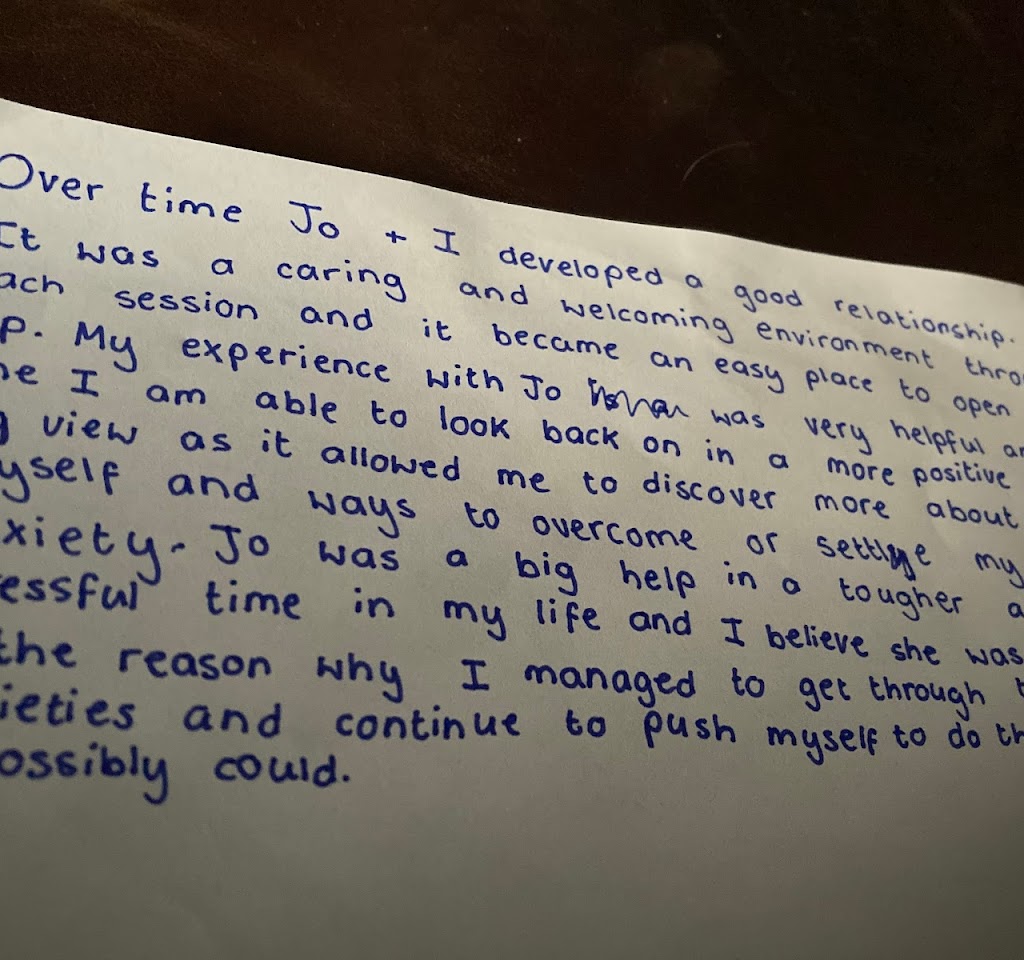 Over time Jo + I developed a good relationship.
It was a caring and welcoming environment thro
ach session and it became an easy place to open
p. My experience with Jo was very helpful an
ne I am able to look back on in a more positive
g view as it allowed me to discover more about
yself and ways to overcome or settle my
xiety. Jo was a big help in a tougher a
essful time in my life and I believe she was
the reason why I managed to get through t
ieties and continue to push myself to do th
ossibly could.